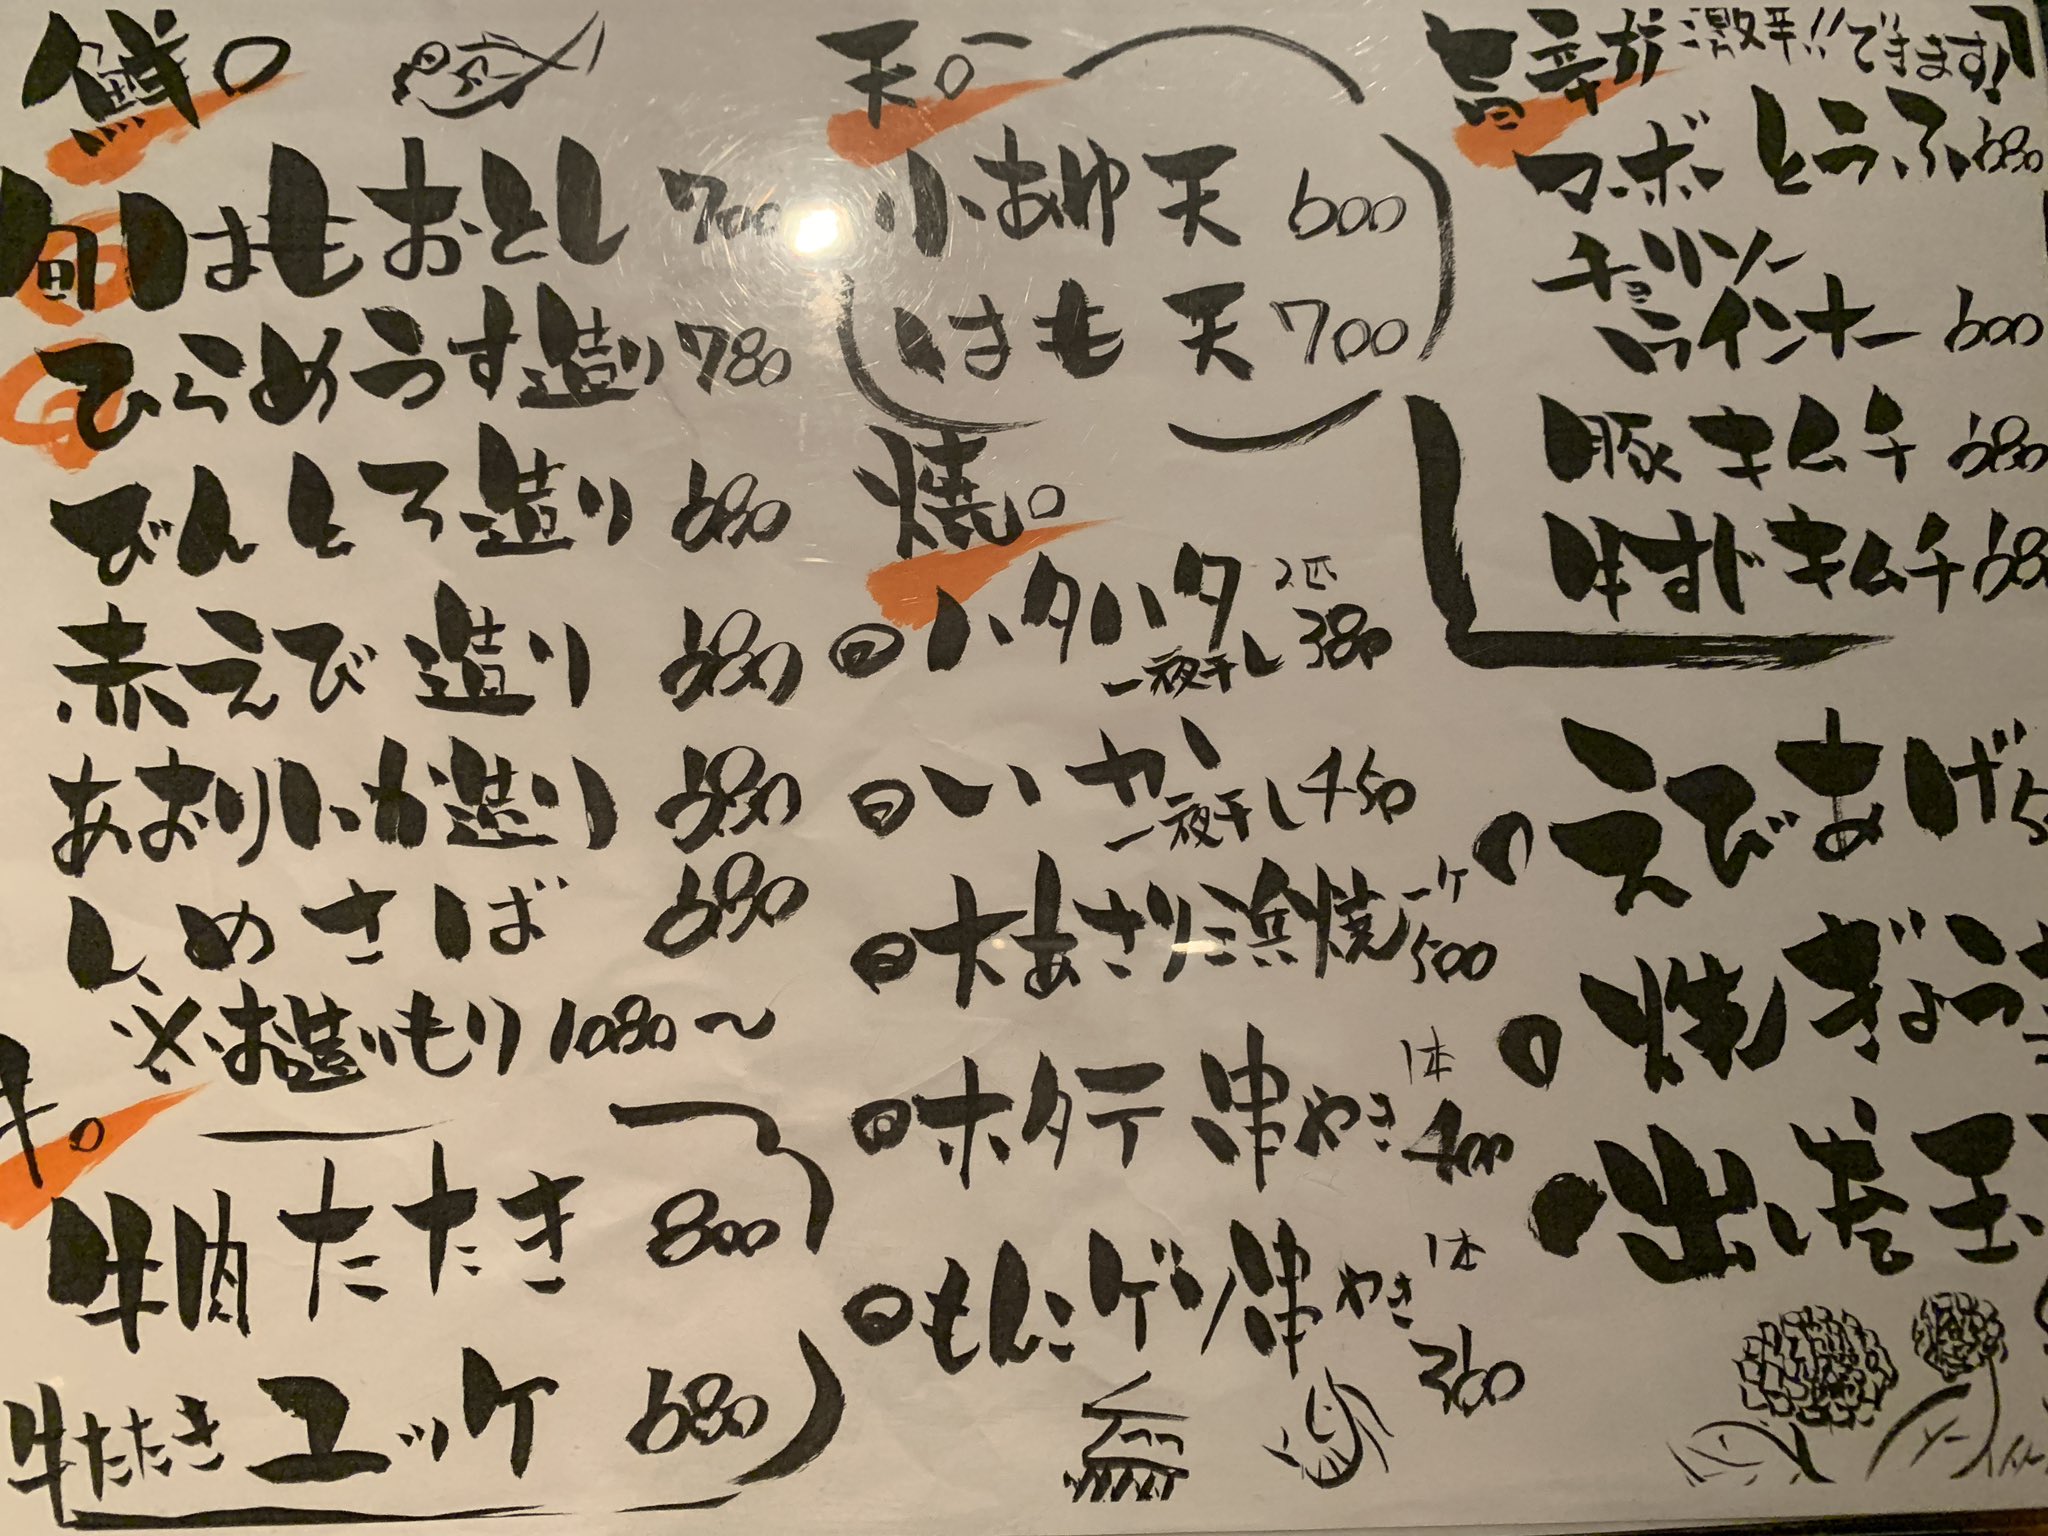 鮮。
旬 はもおとし 700
ひらめうす造り 780
びんとろ造り 680
赤えび造り 680
あおりいか造り 680
しめさば 680
※お造りもり 1080～
牛肉たたき 800
牛たたきユッケ 680
天。
小あゆ天 600
はも天 700
焼。
ハタハタ 2匹
一夜干し 380
いか
一夜干し 450
大あさり浜焼 一ケ
500
ホタテ串やき 1本
400
もんごゲソ串やき 1本
360
旨辛が 激辛!!できます!
マーボとうふ 680
チョリソー
ウインナー 600
豚キムチ 680
牛すじキムチ
えびあげ
焼ぎょう
出し巻玉